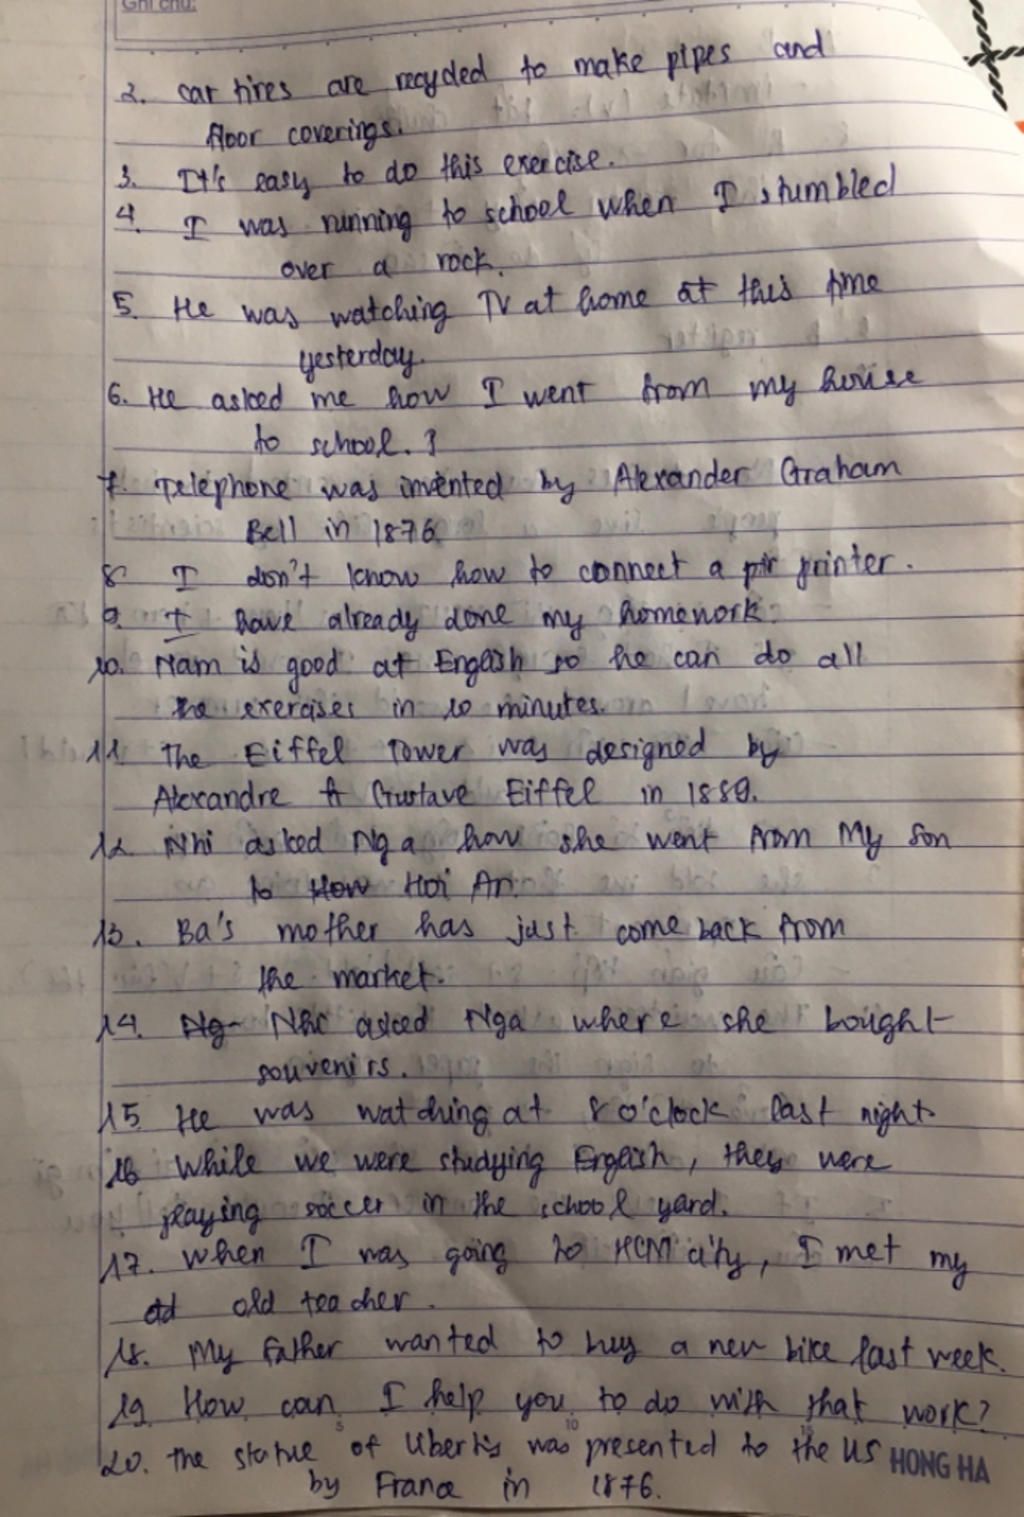 Ghi chú:
2. car tires are recycled to make pipes and
floor coverings.
3. It's easy to do this exercise.
4. I was running to school when I stumbled
over a rock.
5. He was watching TV at home at this time
yesterday.
6. He asked me how I went from my house
to school.
7. Telephone was invented by Alexander Graham
Bell in 1876.
8 I don't know how to connect a printer.
9. I have already done my homework.
10. Nam is good at English so he can do all
the exercises in 10 minutes.
11. The Eiffel Tower was designed by
Alexandre Gustave Eiffel in 1889.
12 Nhi asked Nga how she went from My Son
to Hoi An.
13. Ba's mother has just come back from
the market.
14. Nhi asked Nga where she bought
souvenirs.
15 He was watching at 8 o'clock last night.
16 While we were studying English, they were
playing soccer in the school yard.
17. When I was going to HCM city, I met my
old teacher.
18. My father wanted to buy a new bike last week.
19 How can I help you to do with that work?
20. The statue of Liberty was presented to the US HONG HA
by France in 1876.